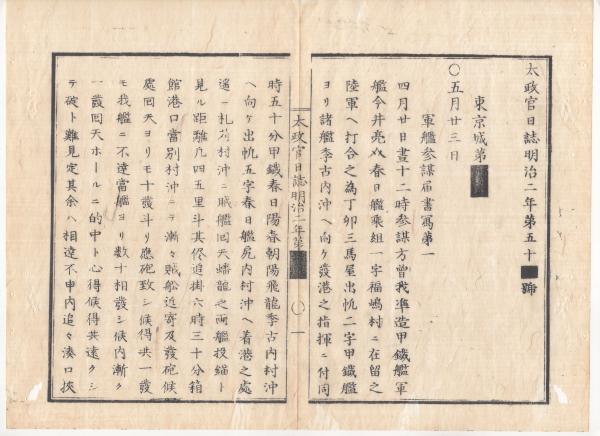 太政官日誌明治二年第五十 號
東京城第
○五月廿三日
軍艦參謀届書寫第一
四月廿日晝十二時參謀方曾我準造甲鐵艦軍
艦今井亮 春日艦乘組一字福嶋村ニ在留之
陸軍ヘ打合之為丁卯三馬屋出帆二字甲鐵艦
ヨリ諸艦季古内沖ヘ向ケ發港之指揮ニ付同
時五十分甲鐵春日陽春朝陽飛龍季古内村沖
ヘ向ケ出帆五字春日艦 内村沖ヘ着港之處
遥ニ札苅村沖ニ賊艦回天蟠龍之両艦投錨ト
見ル距離凡四五里斗其侭追掛六時三十分箱
館港口當別村沖ニテ漸々賊船近寄及發砲候
處回天ヨリモ十發斗リ應砲致シ候得共一發
モ我艦ニ不達當艦ヨリ数十相發シ候内漸ク
一發回天ホールニ的中ト心得候得共遠クシ
テ破ト難見定其余ハ相達不申内追々湊口挾
太政官日誌明治二年第
○ 一